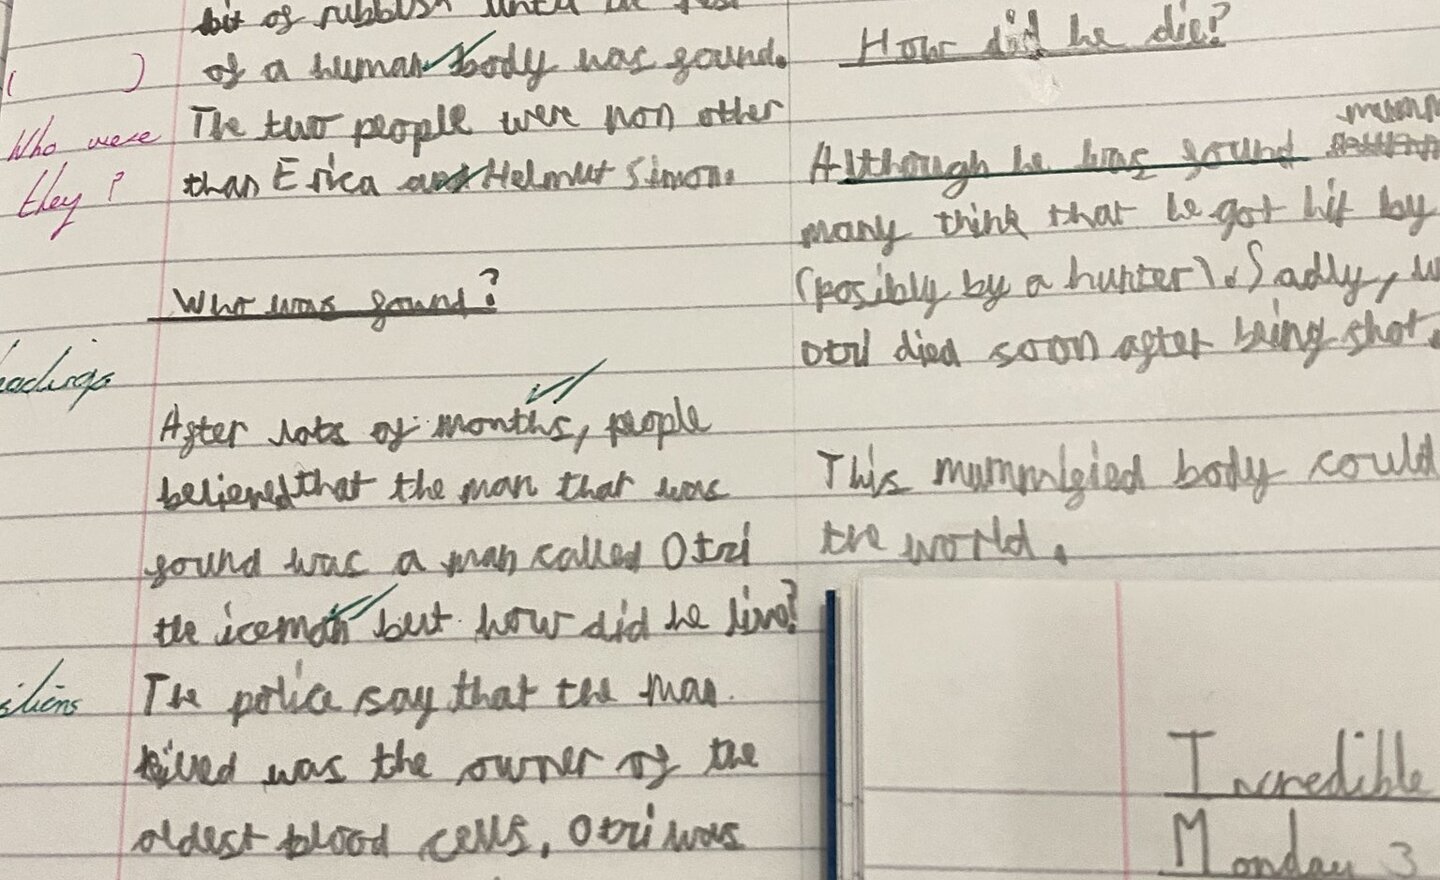 bit of rubbish until
of a human body was found.
The two people were non other
than Erica and Helmut Simon.
Who was found?
After lots of months, people
believed that the man that was
found was a man called Otzi
the iceman but how did he live?
The police say that the man
killed was the owner of the
oldest blood cells. Otzi was
( )
Who were
they?
How did he die?
Although he was found
many think that he got hit by
(posibly by a hunter). Sadly,
Otzi died soon after being shot.
This mummified body could
the world.
Incredible
Monday 3